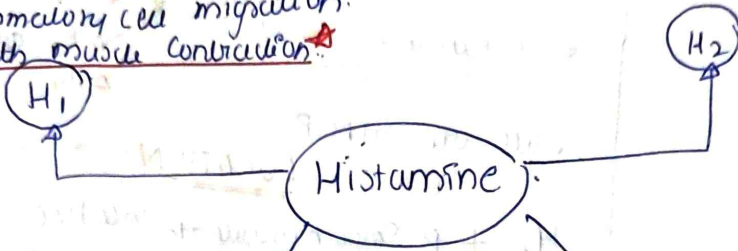 cell migration.
muscle contraction
H2
H1
Histamine